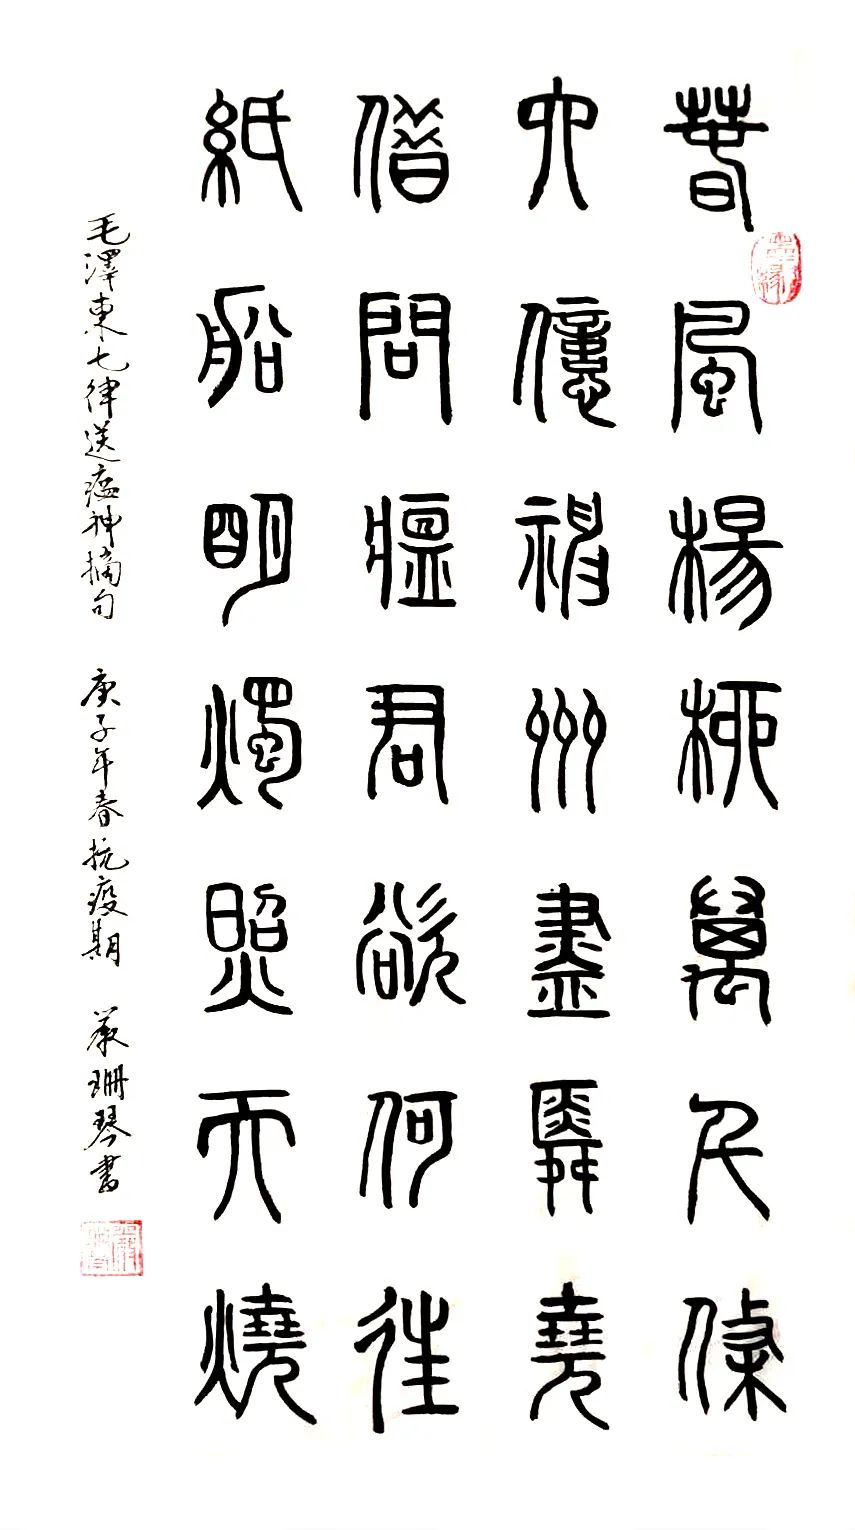 春風楊柳萬千條
六億神州盡舜堯
借問瘟君欲何往
紙船明燭照天燒
毛澤東七律送瘟神摘句 庚子年春抗疫期 嚴珊琴書